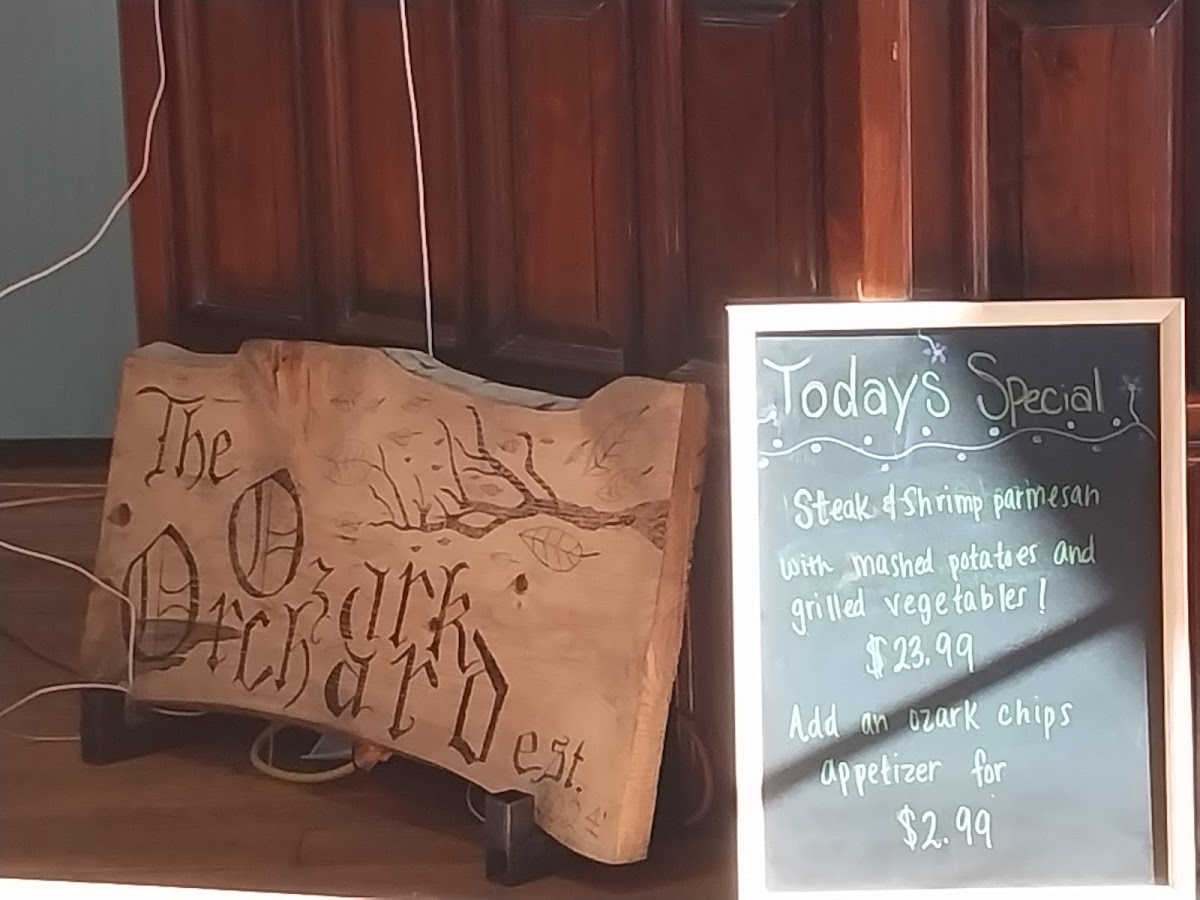 The
Ozark
Orchard
est.
Todays Special
Steak & Shrimp parmesan
with mashed potatoes and
grilled vegetables!
$23.99
Add an ozark chips
appetizer for
$2.99